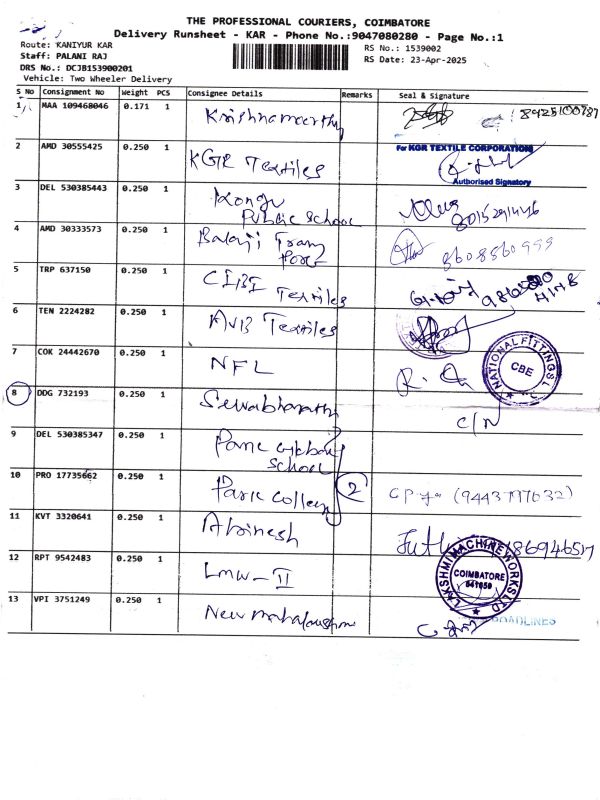 THE PROFESSIONAL COURIERS, COIMBATORE
Delivery Runsheet - KAR - Phone No.:9047080280 - Page No.:1
Route: KANIYUR KAR
Staff: PALANI RAJ
DRS No.: DCJB153900201
Vehicle: Two Wheeler Delivery
RS No.: 1539002
RS Date: 23-Apr-2025
S No Consignment No Weight PCS Consignee Details Remarks Seal & Signature
1 MAA 109468046 0.171 1 Krishnamoorthy 8925100787
2 AMD 30555425 0.250 1 KGR Textiles
For KGR TEXTILE CORPORATION
Authorised Signatory
3 DEL 530385443 0.250 1 Kongu
Public School
4 AMD 30333573 0.250 1 Balaji Trans
Port 8608560999
5 TRP 637150 0.250 1 CIBI Textiles
6 TEN 2224282 0.250 1 AVB Textiles
7 COK 24442670 0.250 1 NFL
NATIONAL FITTINGS L
CBE
8 DDG 732193 0.250 1 Sewabharathi C/N
9 DEL 530385347 0.250 1
School
10 PRO 17735662 0.250 1 Park College 2
11 KVT 3320641 0.250 1 Abinesh
12 RPT 9542483 0.250 1 LMW-II
LAKSHMI MACHINE WORKS LTD
COIMBATORE
641659
13 VPI 3751249 0.250 1 New
ROADLINES